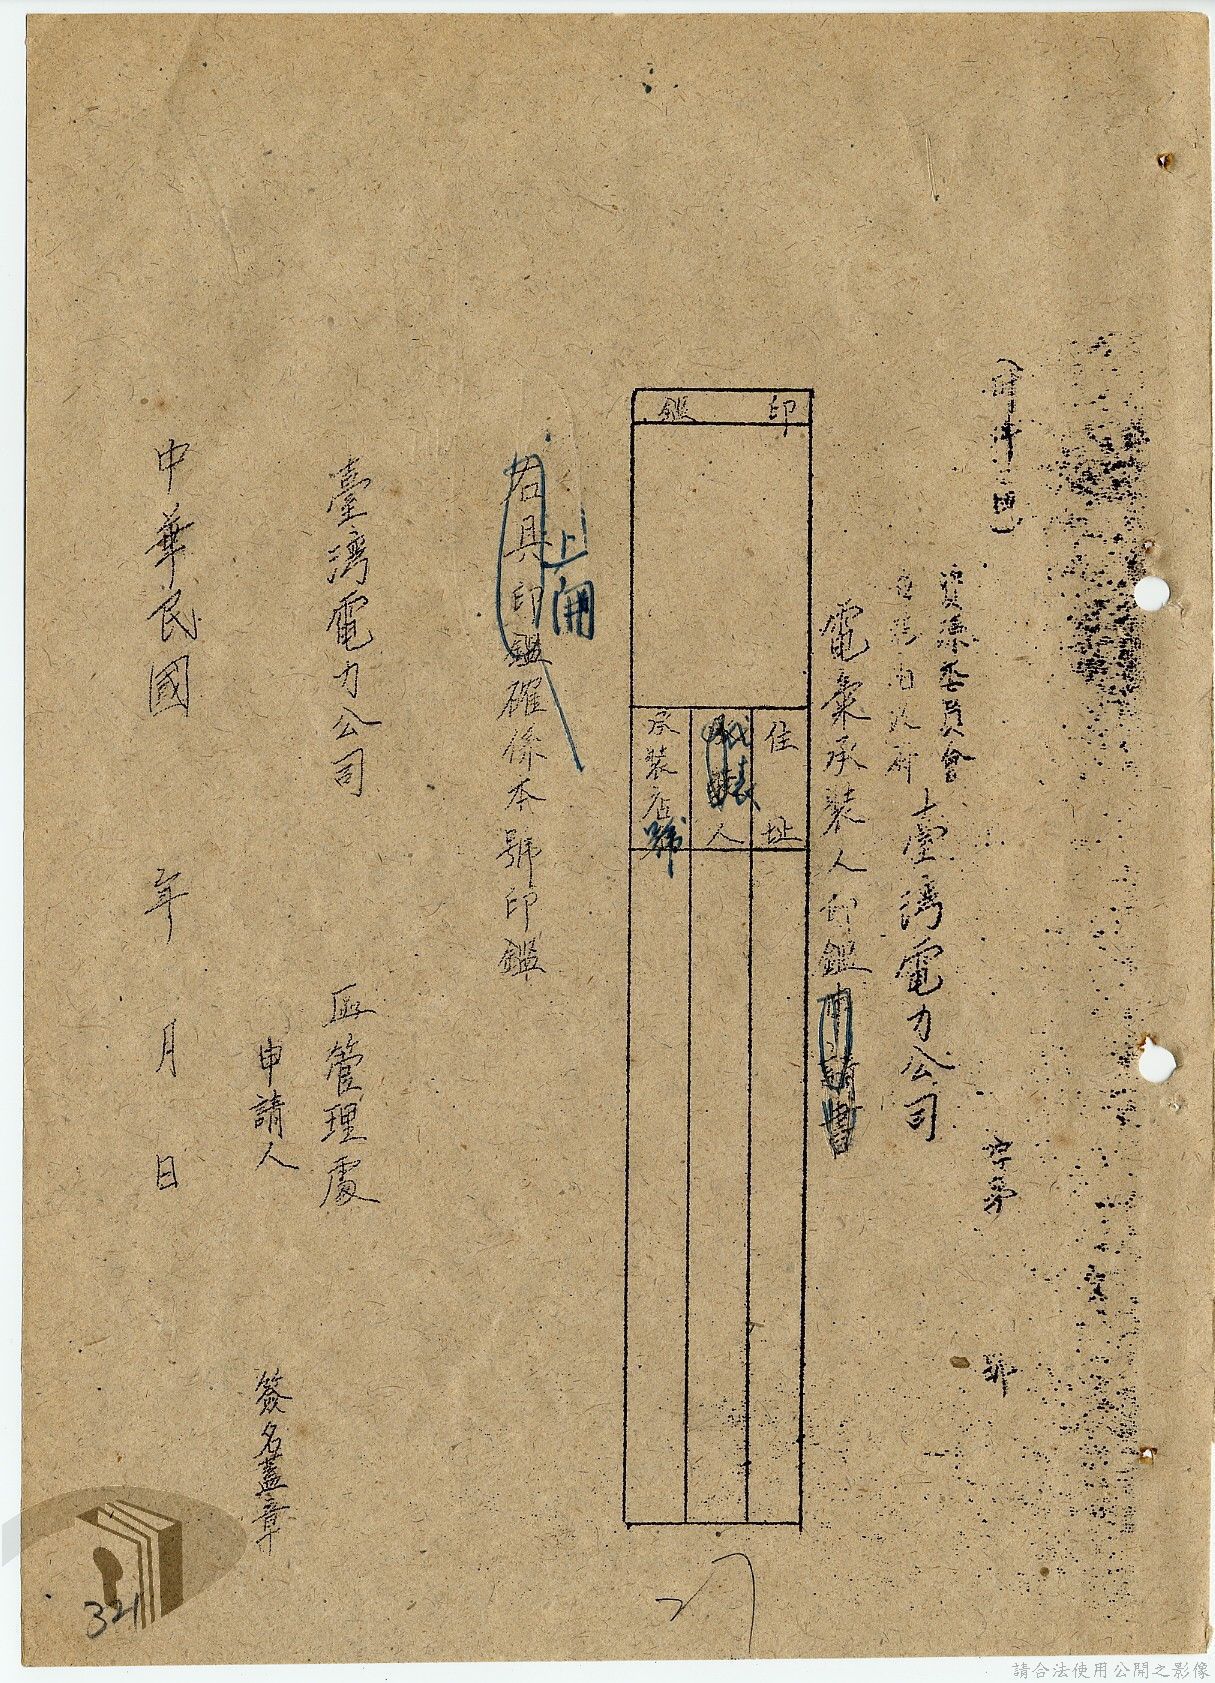 (附件二)
字第
號
資源委員會
臺灣電力公司
電氣承裝人印鑑申請書
印鑑
住址
代表人
承裝店號
右具印鑑確係本號印鑑
上開
臺灣電力公司
區管理處
申請人
簽名蓋章
中華民國 年 月 日
27
321
請合法使用公開之影像